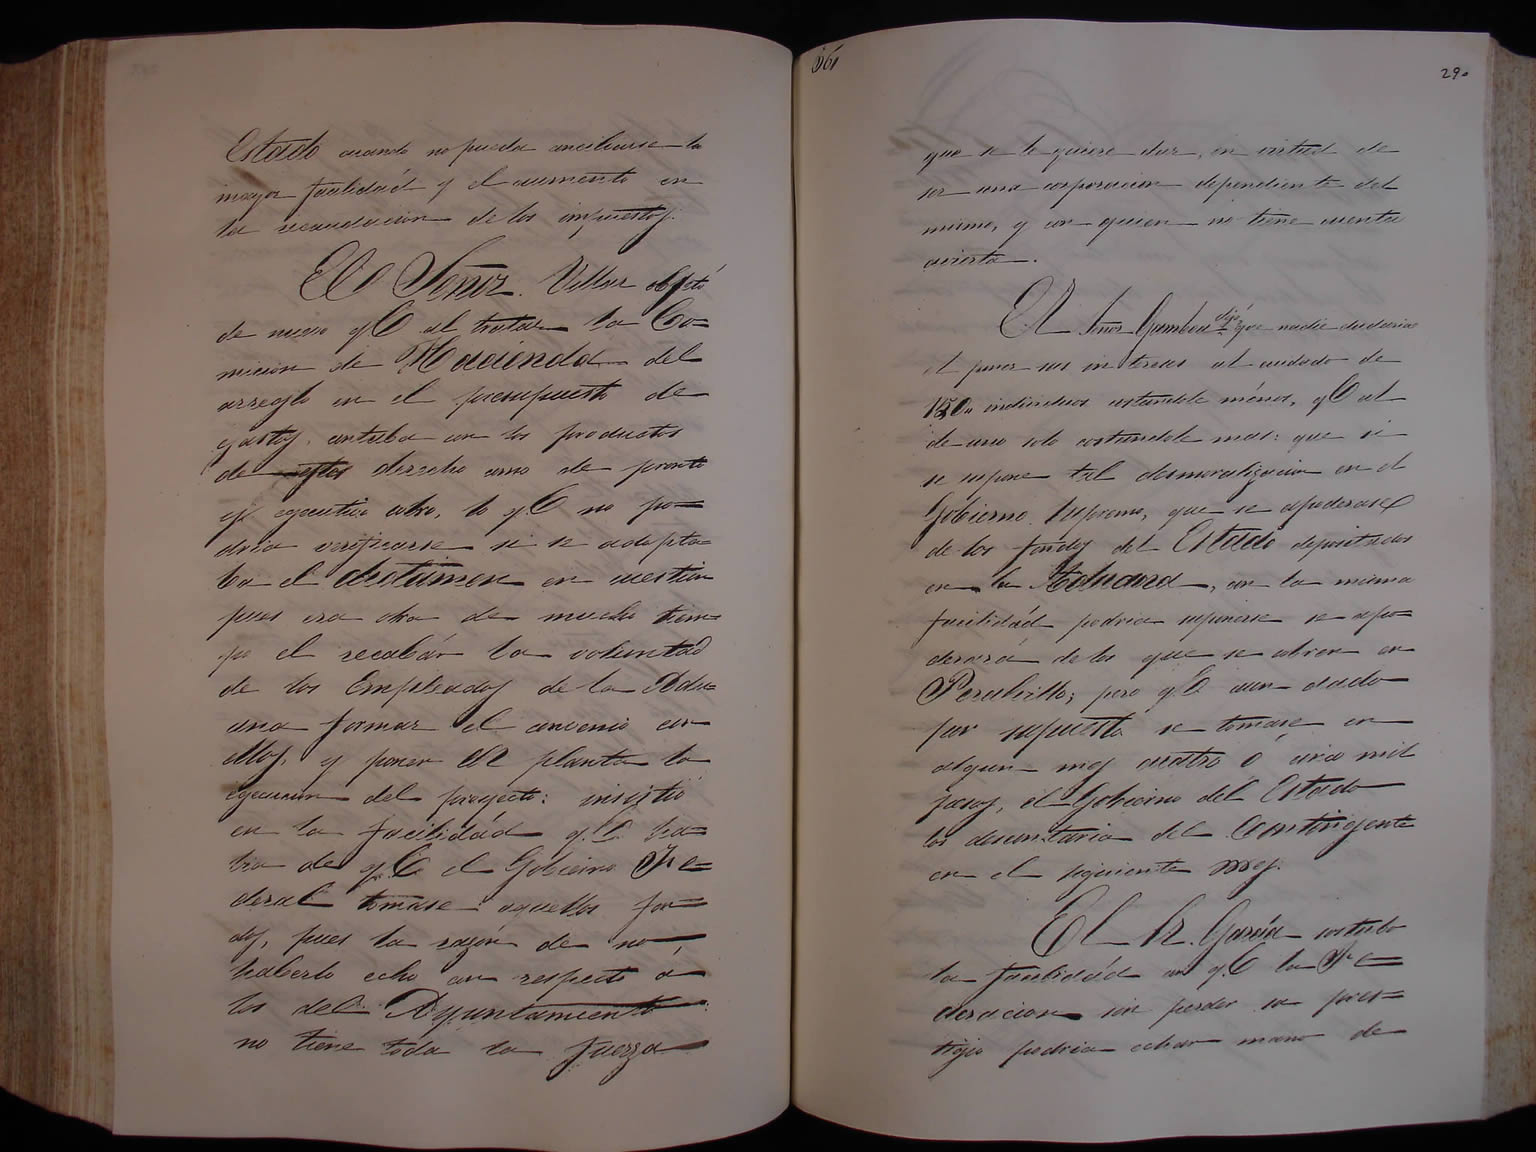 Estado cuando no pueda conciliarse la
mayor facilidad y el aumento en
la recaudacion de los impuestos.
El Señor Villar objetó
de nuevo q.e al tratar la Co=
micion de Hacienda del
arreglo en el presupuesto de
gastos, contaba con los productos
de estos derechos como de pronto
y egecutivo cobro, lo q.e no po=
dria verificarse si se adopta=
ba el dictamen en cuestion
pues era obra de mucho tiem=
po el recabár la voluntad
de los Empleados de la Adu=
ana formar el convenio con
ellos, y poner en planta la
egecucion del proyecto: insistió
en la facilidád q.e ha=
bia de q.e el Gobierno Fe=
deral tomase aquellos fon=
dos, pues la razón de no
haberlo echo con respecto á
los del Ayuntamiento
no tiene toda la fuerza
361
290
que se le quiere dar, en virtud de
ser una corporacion dependiente del
mismo, y con quien no tiene cuenta
avierta.
El Señor Gamboa dijo que nadie dudaria
el poner sus intereses al cuidado de
150 individuos costandole ménos, q.e al
de uno solo costandole mas: que si
se supone tal desmoralizacion en el
Gobierno Supremo, que se apoderase
de los fondos del Estado depositados
en la Aduana, con la misma
facilidád podria suponerse se apo=
derará de los que se cobren en
Peralvillo; pero q.e aun dado
por supuesto se tomase en
algun mes cuatro ó cinco mil
pesos, el Gobierno del Estado
los descontaria del Contingente
en el siguiente mes.
El Sr. García contesto
la facilidád con q.e la Fe=
deracion sin perder su pres=
tigio podria echar mano de